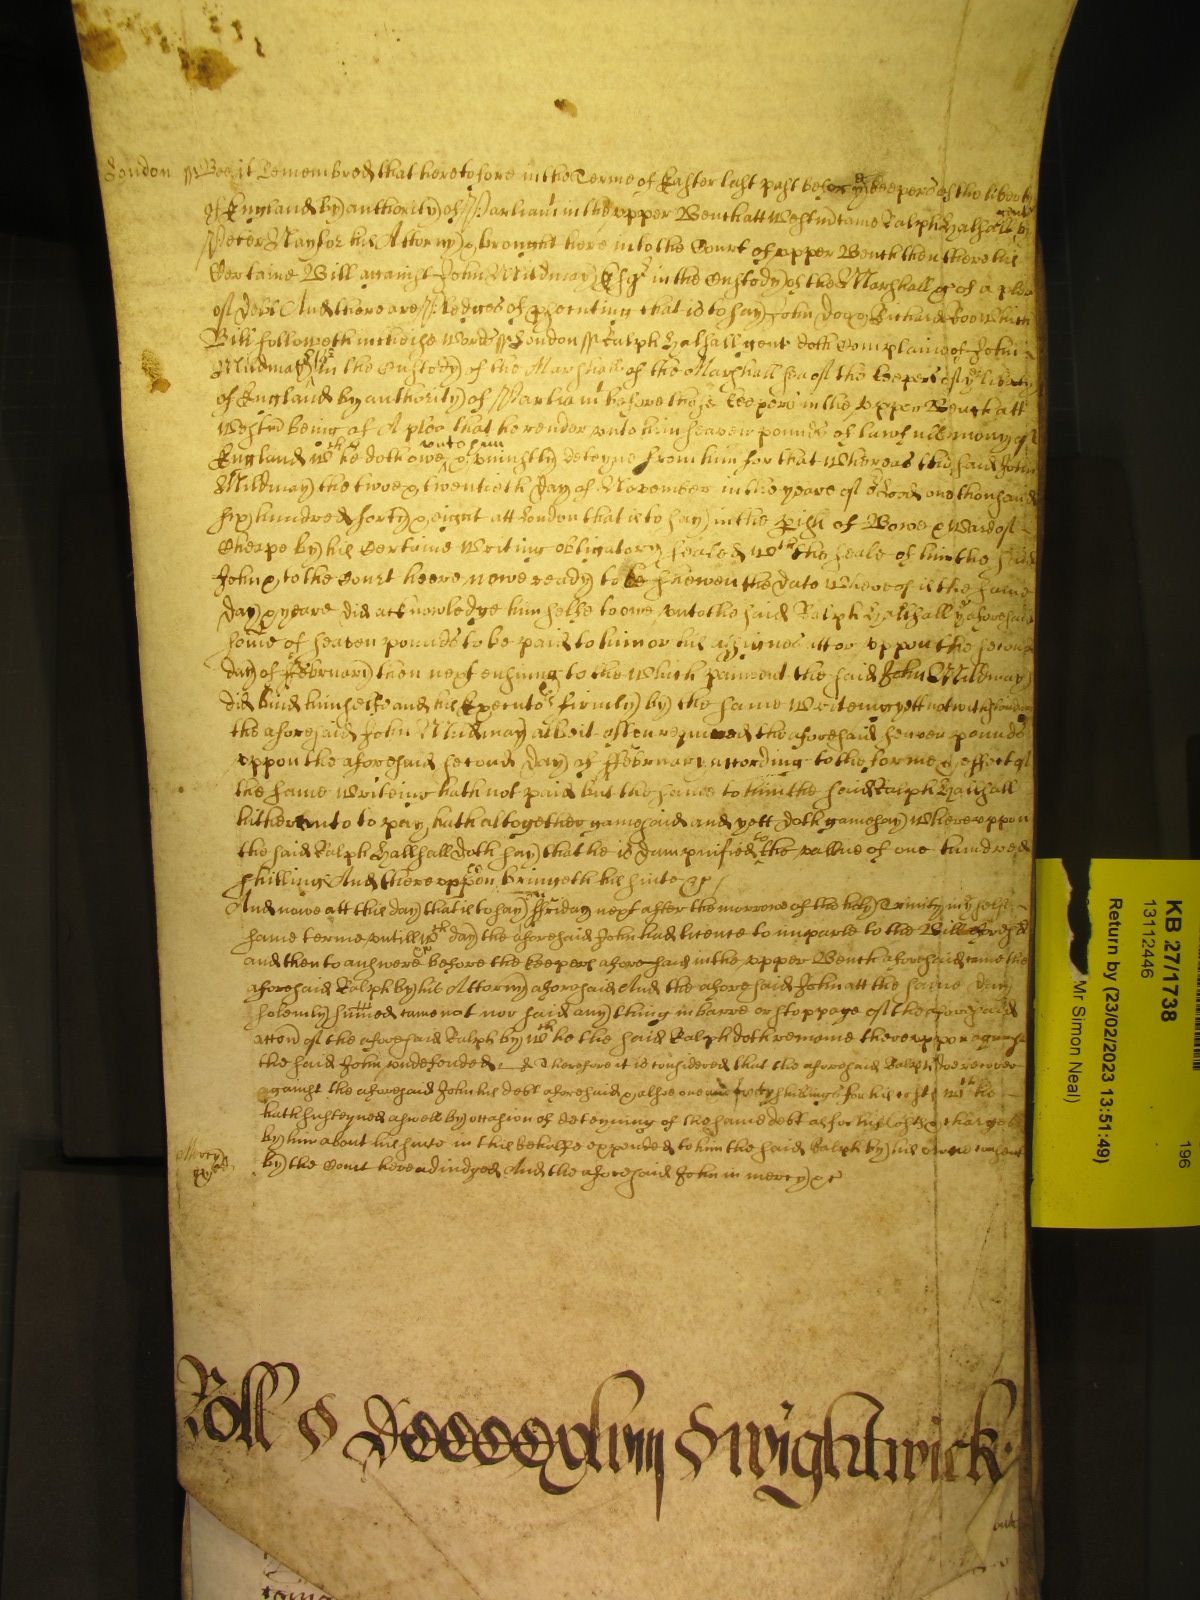 London ss Bee it Remembred that heretofore in the Terme of Easter last past before ye keepers of the liberty
of England by authority of Parliamt in the upper Bench att Westmr came Ralph Halsall gent by
Peter Naylor his Attorny & brought here into the Court of upper Bench then there his
Certaine Bill against John Mildmay Esqr in the Custody of the Marshall &c of a plea
of debt And there are Pledges of psecuting that is to say John Doe & Richard Roe which
Bill followeth in these words ss London ss Ralph Halsall gent doth Complaine of John
Mildmay Esqr in the Custody of the Marshall of the Marshallsea of the keepers of ye liberty
of England by authority of Parliamt before those keepers in the upper Bench att
Westmr being of A plea that he render unto him seaven pounds of lawfull mony of
England wch he doth owe unto him & uniustly deteyne from him for that whereas the said John
Mildmay the twoe & twentieth day of November in the yeare of or Lord one thousand
six hundred forty & eight att London that is to say in the pish of Bowe & Ward of
Cheape by his certaine writing obligatory sealed wth the seale of him the said
John & to the Court heere nowe ready to be shewen the date whereof is the same
day & yeare did acknowledge himselfe to owe unto the said Ralph Hallsall ye aforesaid
some of seaven pounds to be paid to him or his assignes att or uppon the second
day of ffebruary then next ensuing to the which paiment the said John Mildmay
did bind himselfe and his Executors firmly by the same writeing yett notwithstanding
the aforesaid John Mildmay albeit often required the aforesaid seaven pounds
uppon the aforesaid second day of ffebruary according to the forme & effect of
the same writeing hath not paid but the same to him the said Ralph Hallsall
hitherunto to pay hath altogether gainesaid and yett doth gainesay whereuppon
the said Ralph Hallsall doth say that he is dampnified to the vallue of one hundred
shillings And thereuppon bringeth his suite &c
And nowe att this day that is to say ffriday next after the morrowe of the holy Trinity in ys
same terme untill wch day the aforesaid John had licence to imparle to the Bill aforesd
and then to answere &c before the keepers aforesaid in the upper Bench aforesaid came the
aforesaid Ralph by his Attorny aforesaid And the aforesaid John att the same day
solemly sumoned came not nor said any thing in barre or stoppage of the aforesaid
accon of the aforesaid Ralph by wch he the said Ralph doth remaine thereuppon against
the said John undefended &c Therefore it is considered that the aforesaid Ralph doe recover
against the aforesaid John his debt aforesaid & alsoe one and forty shillings for his costs wch he
hath susteyned aswell by occasion of deteyning of the same debt as for his Costs & charges
by him about his suite in this behalfe expended to him the said Ralph by his owne consent
by the Court here adiudged And the aforesaid John in mercy &c
Mercy
Roll S DCCCCxlviij Swyghtwick
KB 27/1738
13112446
Return by (23/02/2023 13:51:49)
Mr Simon Neal)
196